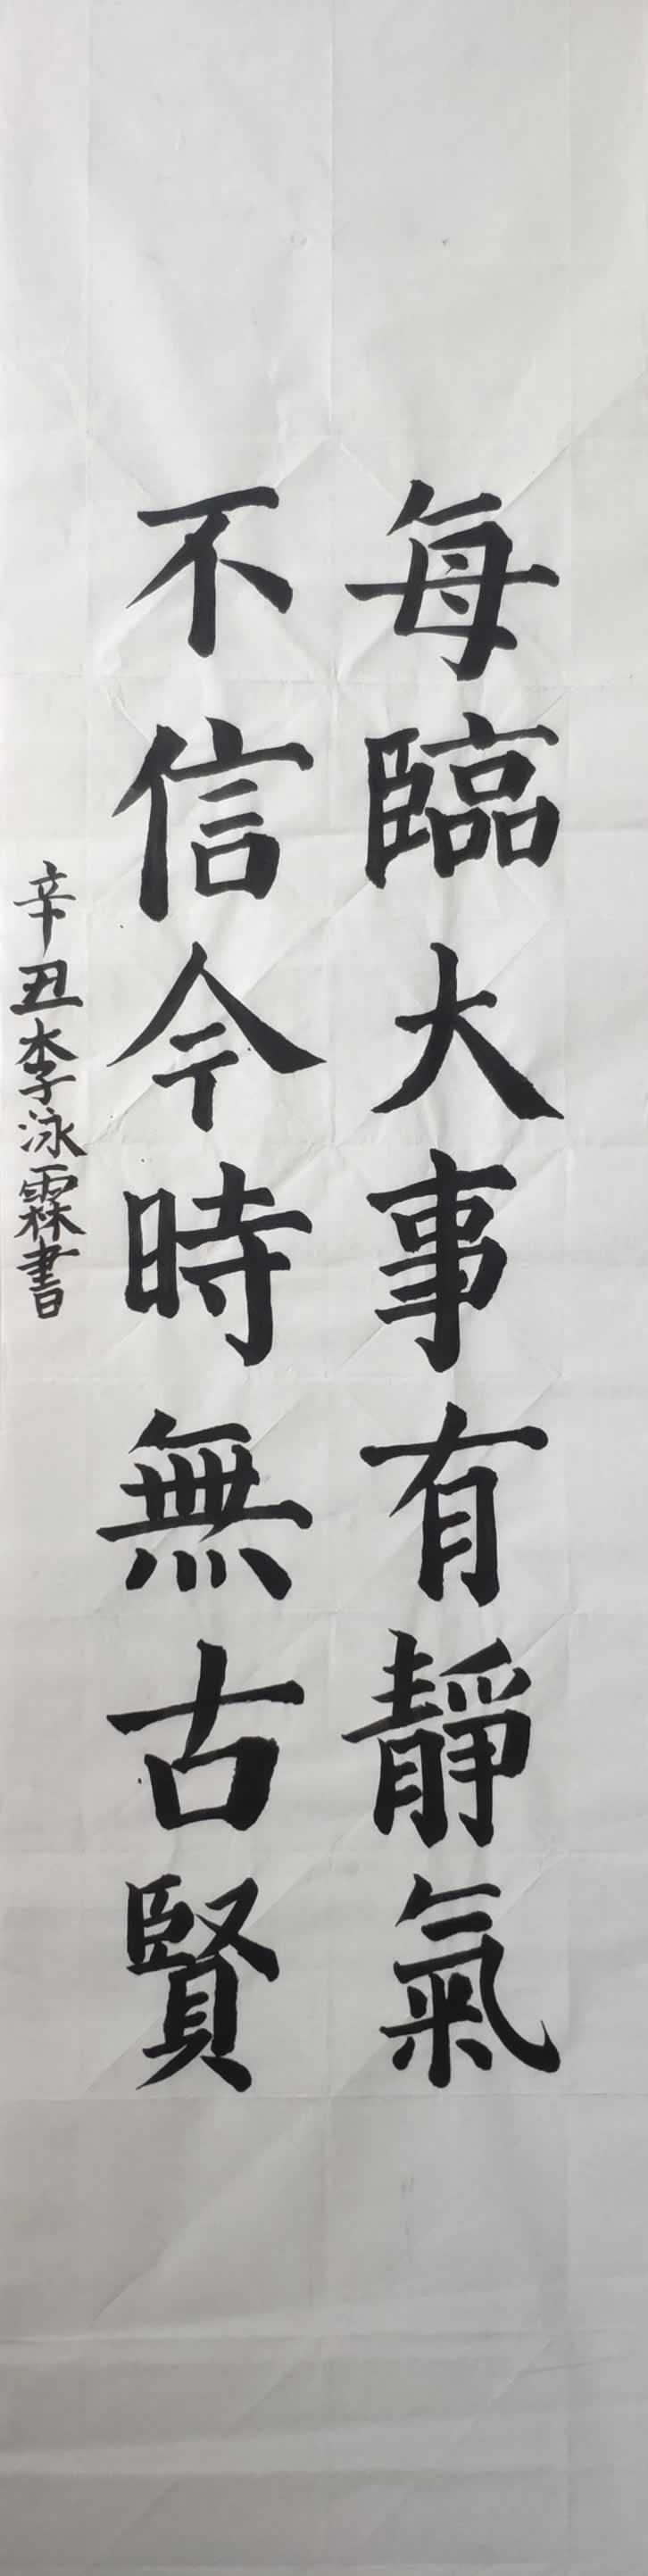 每臨大事有靜氣
不信今時無古賢
辛丑李泳霖書